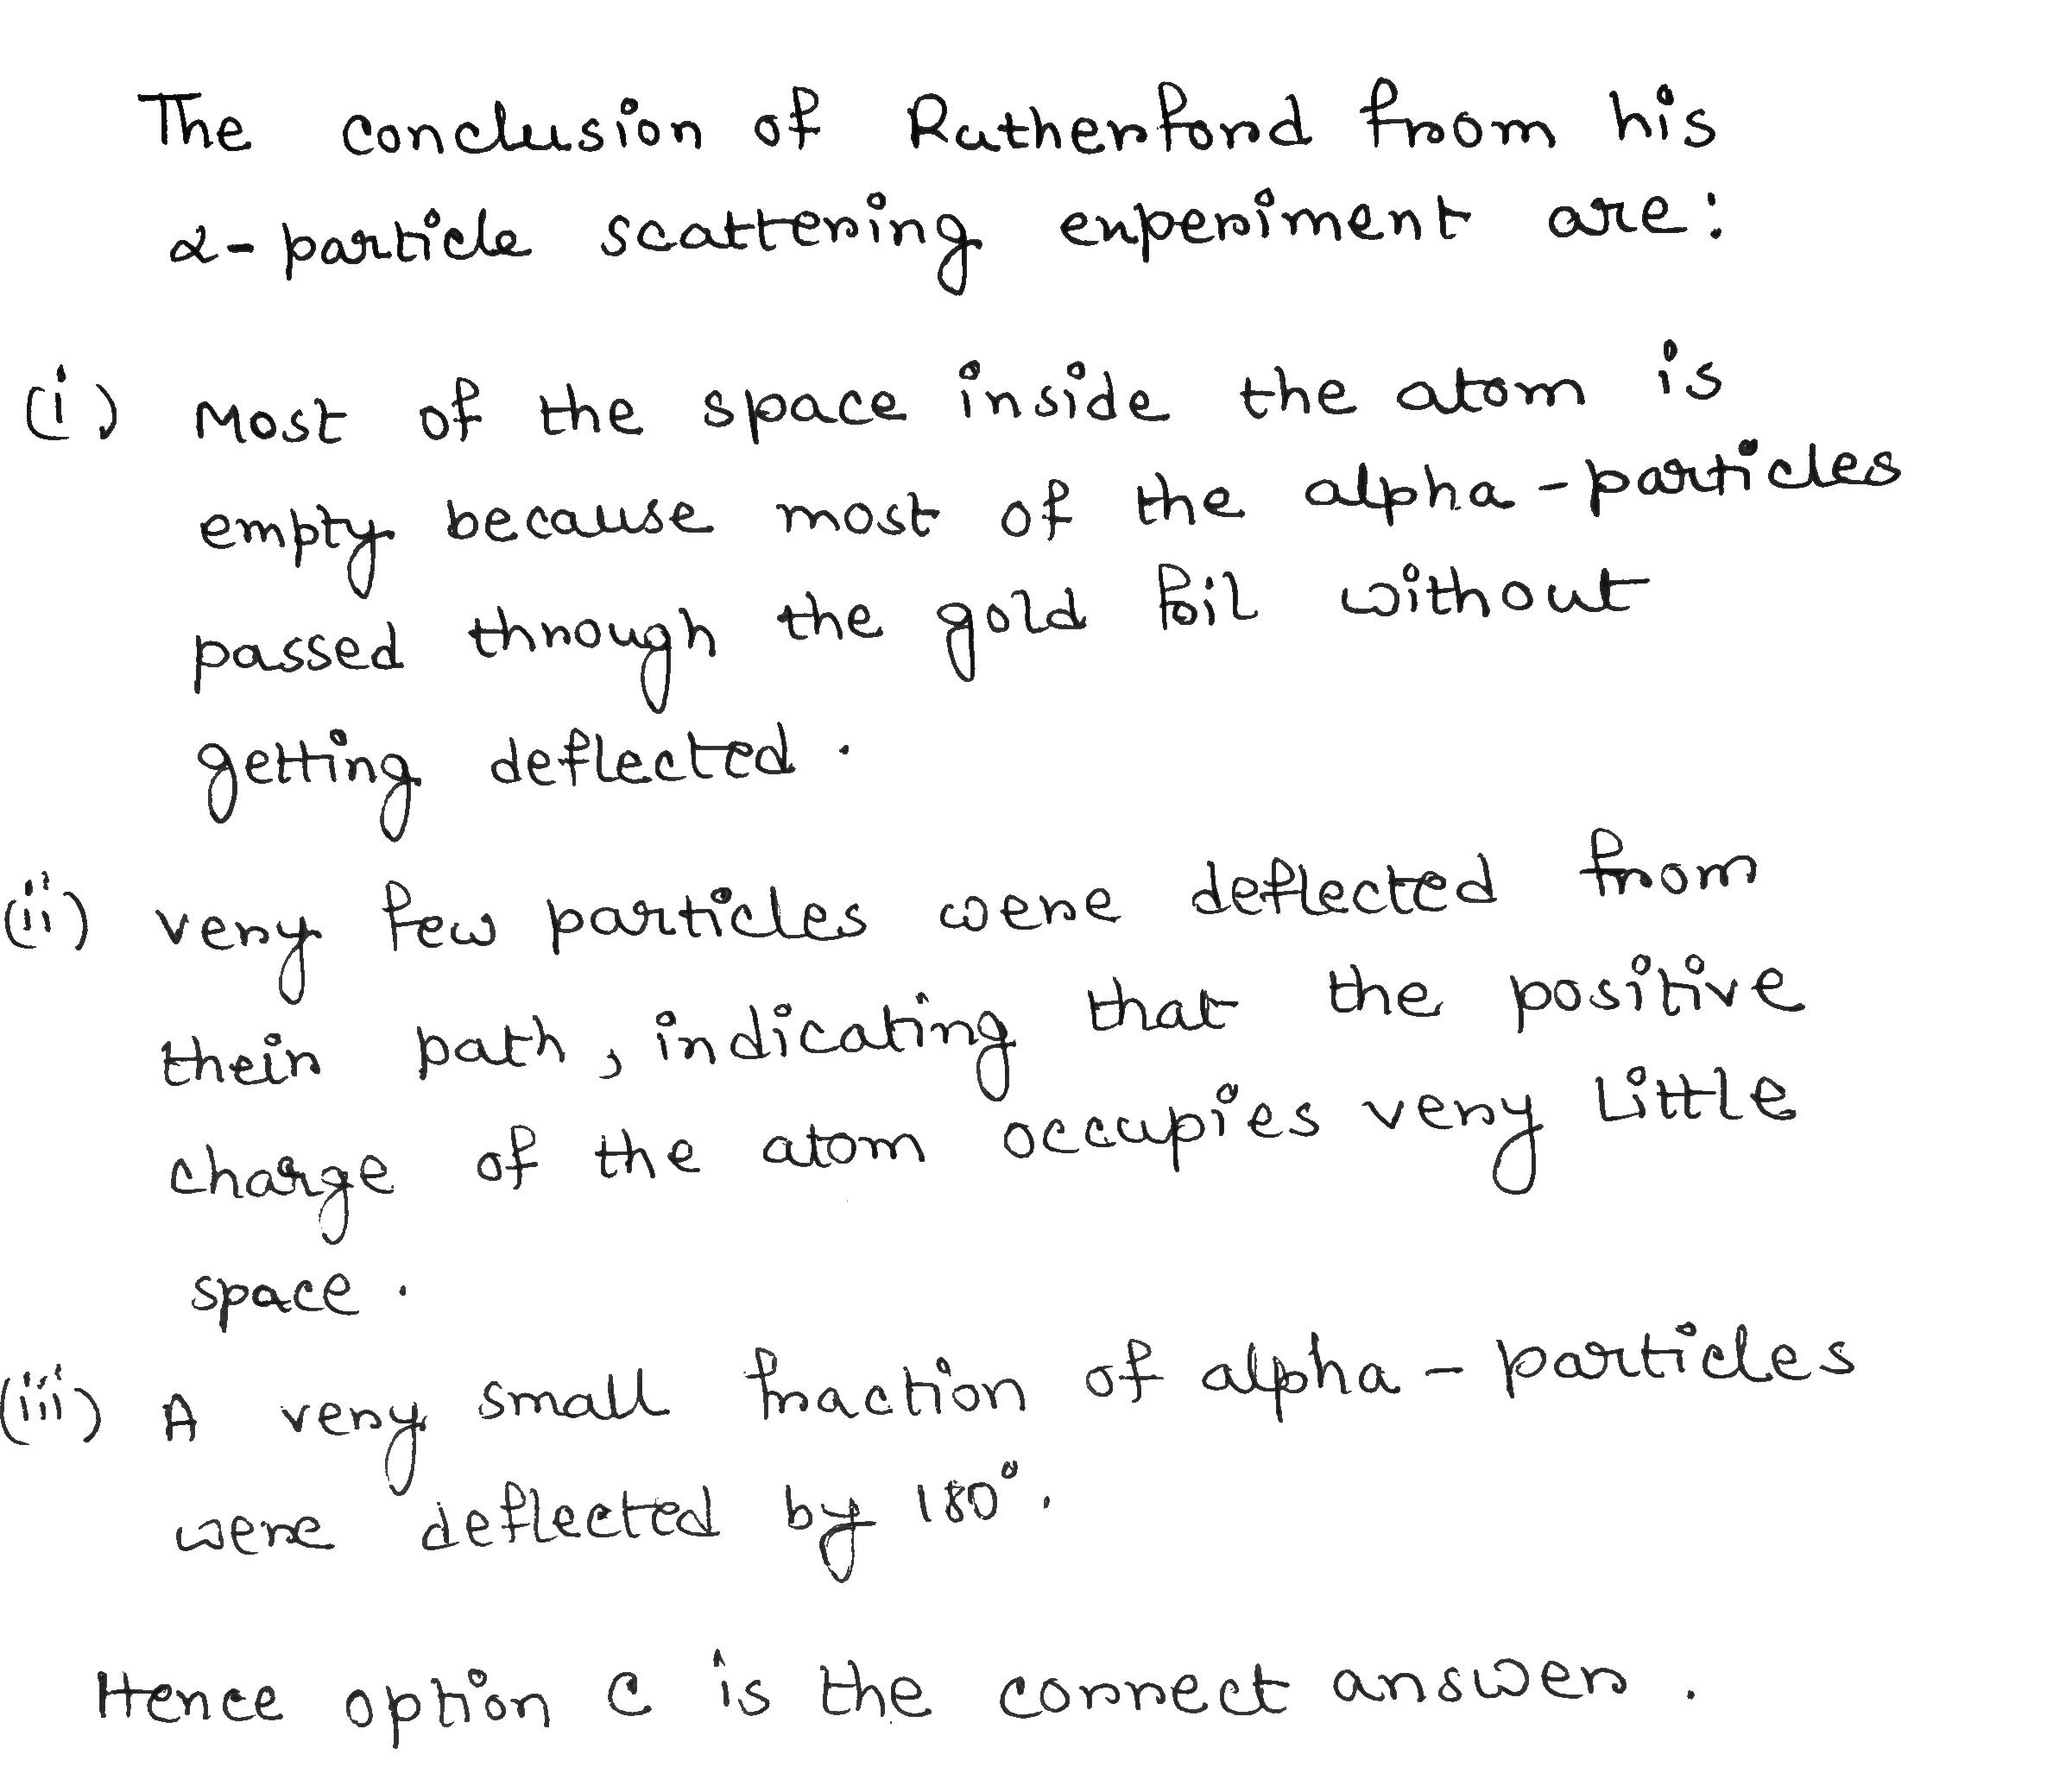 The conclusion of Rutherford from his
α-particle scattering experiment are:
(i) Most of the space inside the atom is
empty because most of the alpha-particles
passed through the gold foil without
getting deflected.
(ii) very few particles were deflected from
their path, indicating that the positive
charge of the atom occupies very little
space.
(iii) A very small fraction of alpha-particles
were deflected by 180°.
Hence option C is the correct answer.